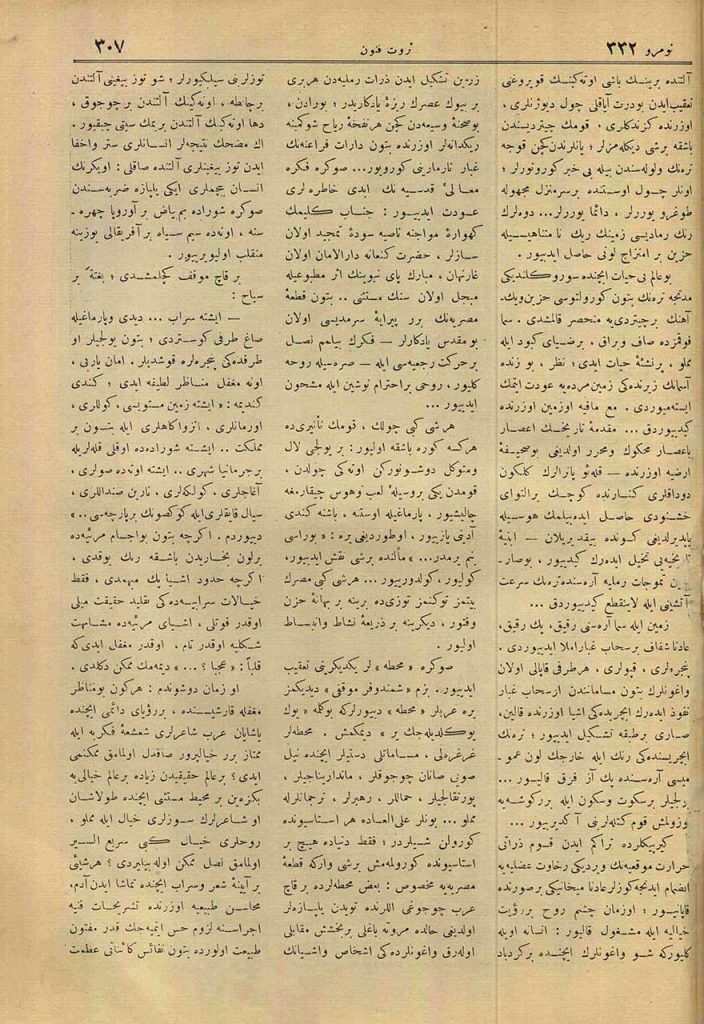 نومرو ٣٣٢
ثروت فنون
٣٠٧
آلتنده برینك باشی اوته‌كینك قویروغنی
تعقیب ایدن بودرت آیاقلی چول دیوژنلری،
اوزرنده كزندكلری، قومك چیتردیسندن
باشقه برشی دیكله‌مزلر؛ یانلرندن كچن قوجه
تره‌نك ولوله‌سندن بیله بی خبر كورونورلر،
اونلر چول اوستنده برسرمنزل مجهوله
طوغرو یوررلر، دائما یوررلر... دوه‌لرك
رنك رمادیسی زمینك ریك نامتناهیسیله
حزین بر امتزاج لونی حاصل ایدییور.
بوعالم بی حیات ایچنده سوروكلندیكی
مدتجه تره‌نك بتون كورولتوسی حزین‌ویك‌ـ
آهنك برچیتردی‌یه منحصر قالمشدی. سما
فوقمزده صاف وبراق، برضیای كبود ایله
مملو، برنشئهٔ حیات ایدی؛ نظر، بو زنده
آسمانك زیرنده‌كی زمین‌مرده‌یه عودت ایتمك
ایسته‌میوردی. مع مافیه اوزمین اوزرنده
كیدییوردق... مقدمهٔ تاریخك اعصار
باعصار محكوك ومحرر اولدیغی بوصحیفهٔ
ارضیه اوزرنده — قلم‌ئو پاترالرك كلكون
دوداقلری كنارنده كوچك برالتوای
خشنودی حاصل ایده‌بیلمك هوسیله
یاپدیرلدیغی كونده بیقدیریلان — ابنیهٔ
تاریخیه‌یی تخیل ایده‌رك كیدییور، بوصار‌ـ
ین تموجات رملیه آره‌سنده تره‌نك سرعت
آتشینی ایله لاینقطع كیدییوردق...
زمین ایله سما آره‌سنی رقیق، پك رقیق،
عادتا شفاف برسحاب غبار املا ایدییوردی.
پنجره‌لری، قپولری، هرطرفی قاپالی اولان
واغونلرك بتون مساماتندن ازسحاب غبار
نفوذ ایده‌رك ایچریده‌كی اشیا اوزرنده قالین،
صاری برطبقه تشكیل ایدییور؛ تره‌نك
ایچریسنده‌كی رنك ایله خارجك لون عمو‌ـ
میسی آره‌سنده پك آز فرق قالییور...
یولجیلر برسكوت وسكون ایله بررگوشه‌یه
بوزولمش قوم كتله‌لرینی آكدیرییور...
كیرپیكلرده تراكم ایدن قوم ذراتی
حرارت موقعیه‌نك ویردیكی رخاوت عضلیه‌یه
انضمام ایدنجه‌كوزلرعادتا میخانیكی برصورتده
قاپانییور؛ اوزمان چشم روح بررؤیت
خیالیه ایله مشغول قالییور: انسانه اویله
كلییوركه شو واغونلرك ایچنده بركردباد
زرین تشكیل ایدن ذرات رملیه‌دن هربری
بر بیوك عصرك ریزهٔ یادكاریدر؛ بورادن،
بوصحنهٔ وسیعه‌دن كچن هرنفخهٔ ریاح شوكمینه
ریكدانه‌لر اوزرنده بتون دارات فراعنه‌نك
غبار تارمارینی كورویور... صوكره فكره
معالیٔ قدسیه‌نك ابدی خاطره‌لری
عودت ایدییور: جناب كلیمك
كهوارهٔ مواجنه ناصیه سودهٔ تمجید اولان
سازلر، حضرت كنعانه دارالامان اولان
غارنهان، مبارك پای نبوینك اثر مطبوعیله
مبجل اولان سنك مستثنی .. بتون قطعهٔ
مصریه‌نك برر پیرایهٔ سرمدیسی اولان
بو مقدس یادكارلر — فكرك بیلمم نصل
برحركت رجعیه‌سی ایله — صره‌سیله روحه
كلییور، روحی براحترام نوشین ایله مشحون
ایدییور ...
هرشی كبی چولك، قومك تأثیری‌ده
هركسه كوره باشقه اولیور: بر یولجی لال
ومتوكل دوشونوركن اوته‌كی چولدن،
قومدن یكی بروسیلهٔ لعب وهوس چیقارمغه
چالیشیور، پارماغیله اوستنه، باشنه كندی
آدینی یازییور، اوطوردیغی یره: «بوراسی
بنم یرمدر...» مآلنده برشی نقش ایدییور،
كولیور، كولدورییور... هرشی كبی مصرك
بیتمز توكنمز توزی‌ده برینه بر بهانهٔ حزن
وفتور، دیكرینه برذریعهٔ نشاط وانبساط
اولیور.
صوكره «محطه» لر یكدیكرینی تعقیب
ایدییور. بزم «شمندوفر موقفی» دیدیكمز
یره عربلر «محطه» دییورلركه بوكله «یوك
یوكلدیله‌جك یر» دیمكمش. محطه‌لر
غرغره‌لی، مساماتلی دستیلر ایچنده نیل
صویی صاتان چوجوقلر، ماندارینه‌جیلر،
پورتقالجیلر، حماللر، رهبرلر، ترجمانلرله
مملو... بونلر علی‌العاده هر استاسیونده
كورولن شیلردر؛ فقط دنیاده هیچ بر
استاسیونده كورولمه‌مش برشی واركه قطعهٔ
مصریه‌یه مخصوص: بعض محطه‌لرده بر قاچ
عرب چوجوغی اللرنده تویدن یلپازه‌لر
اولدیغی حالده مروته باغلی بربخشش مقابلی
اوله‌رق واغونلرده‌كی اشخاص واشیانك
توزلرینی سیلكییورلر؛ شو توز بیغینی آلتندن
برچانطه، اوته‌كینك آلتندن برچوجوق،
دها اوته‌كینك آلتندن بریمك سپتی چیقیور.
اك مضحك نتیجه‌لر انسانلری ستر واخفا
ایدن توز بیغینلری آلتنده صاقلی: اوبكرنك
انسان بیچملری ایكی یلپازه ضربه‌سندن
صوكره شوراده بم بیاض بر آوروپا چهره‌ـ
سنه، اوته‌ده سیم سیاه بر آفریقالی یوزینه
منقلب اولیویرییور.
بر قاچ موقف كچلمشدی؛ بغتةً بر
سیاح :
— ایشته سراب... دیدی وپارماغیله
صاغ طرفی كوستردی؛ بتون یولجیلر او
طرفده‌كی پنجره‌لره قوشدیلر. امان یاربی،
اونه مغفل مناظر لطیفه ایدی؛ كندی
كندیمه: «ایشته زمین مستویسی، كوللری،
اورمانلری، انزواكاهلری ایله بتون بر
مملكت .. ایشته شوراده‌ده اوقلی قله‌لریله
برجرمانیا شهری .. ایشته اوته‌ده صولری،
آغاجلری، كولكه‌لری، نارین صنداللری،
سیال قایقلری‌ایله كوكصونك برپارچه‌سی..»
دییوردم. اكرچه بتون بواجسام مرئیه‌ده
برلون بخاریدن باشقه رنك یوقدی،
اكرچه حدود اشیا پك مبهمدی، فقط
خیالات سرابیه‌ده‌كی تقلید حقیقت میلی
اوقدر قوتلی، اشیای مرئیه‌ده مشابهت
شكلیه اوقدر تام، اوقدر مغفل ایدی‌كه
قلباً: «عجبا؟...» دیمه‌مك ممكن دكلدی.
او زمان دوشوندم: هركون بومناظر
مغفله قارشیسنده، بررؤیای دائمی ایچنده
یاشایان عرب شاعرلری شعشعهٔ فكریه ایله
ممتاز برر خیالپرور صافدل اولمامق ممكنمی
ایدی؟ برعالم حقیقیدن زیاده برعالم خیالی‌یه
بكزه‌ین بر محیط مستثنی ایچنده طولاشان
او شاعرلرك سوزلری خیال ایله مملو،
روحلری خیال كبی سریع السیر
اولمامق نصل ممكن اوله بیلیردی؟ هرشایئی
بر آیینهٔ شعر وسراب ایچنده تماشا ایدن آدم،
محاسن طبیعیه اوزرنده تشریحات فنیه
اجراسنه لزوم حس ایتمیه‌جك قدر مفتون
طبیعت اولورده بتون نفائس كائناتی عظمت